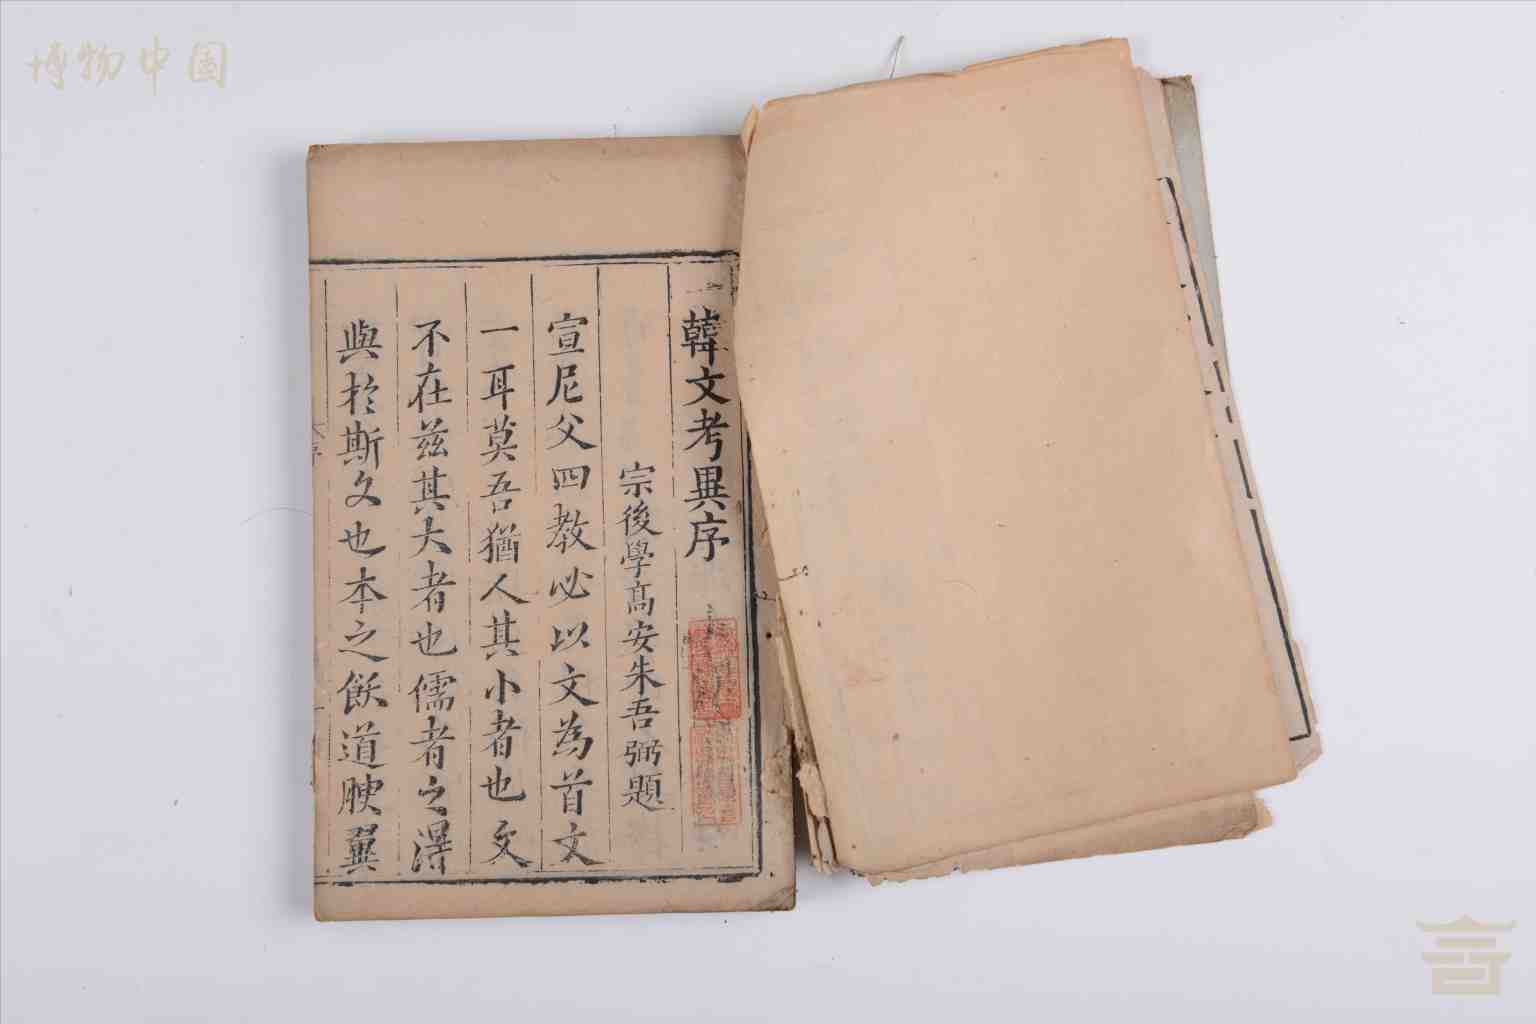 博物中国
韓文考異序
宗後學髙安朱吾弼題
宣尼父四教必以文為首文
一耳莫吾猶人其小者也文
不在兹其大者也儒者之得
與於斯文也本之飫道腴翼